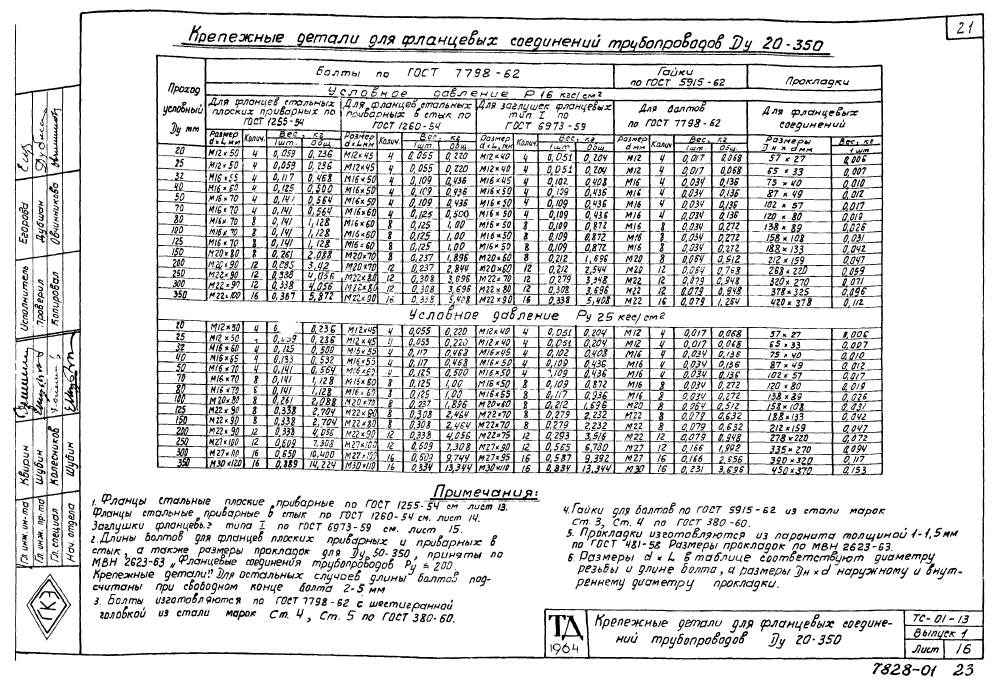 21
Крепежные детали для фланцевых соединений трубопроводов Ду 20-350
Проход условный Ду мм
Болты по ГОСТ 7798-62
Гайки по ГОСТ 5915-62
Прокладки
Условное давление Р 16 кгс/см²
Для фланцев стальных плоских приварных по ГОСТ 1255-54
Для фланцев стальных приварных в стык по ГОСТ 1260-54
Для заглушек фланцевых тип I по ГОСТ 6973-59
Для болтов по ГОСТ 7798-62
Для фланцевых соединений
Размер d×L, мм Колич. Вес, кг 1шт. Общ. Размер d×L, мм Колич. Вес, кг 1шт. Общ. Размер d×L, мм Колич. Вес, кг 1шт. Общ. Размер d мм Колич. Вес, кг 1шт. Общ. Размеры Dн × d мм Вес, кг 1 шт
20 М12×50 4 0,059 0,236 М12×45 4 0,055 0,220 М12×40 4 0,051 0,204 М12 4 0,017 0,068 57 × 27 0,006
25 М12×50 4 0,059 0,236 М12×45 4 0,055 0,220 М12×40 4 0,051 0,204 М12 4 0,017 0,068 65 × 33 0,007
32 М16×55 4 0,117 0,468 М16×50 4 0,109 0,436 М16×45 4 0,102 0,408 М16 4 0,034 0,136 75 × 40 0,010
40 М16×60 4 0,125 0,500 М16×50 4 0,109 0,436 М16×50 4 0,109 0,436 М16 4 0,034 0,136 87 × 49 0,012
50 М16×70 4 0,141 0,564 М16×50 4 0,109 0,436 М16×50 4 0,109 0,436 М16 4 0,034 0,136 102 × 57 0,017
70 М16×70 4 0,141 0,564 М16×60 4 0,125 0,500 М16×50 4 0,109 0,436 М16 4 0,034 0,136 120 × 80 0,019
80 М16×70 8 0,141 1,128 М16×60 8 0,125 1,00 М16×50 8 0,109 0,872 М16 8 0,034 0,272 138 × 89 0,026
100 М16×70 8 0,141 1,128 М16×60 8 0,125 1,00 М16×50 8 0,109 0,872 М16 8 0,034 0,272 158 × 108 0,031
125 М16×70 8 0,141 1,128 М16×60 8 0,125 1,00 М16×50 8 0,109 0,872 М16 8 0,034 0,272 188 × 133 0,042
150 М20×80 8 0,261 2,088 М20×70 8 0,237 1,896 М20×60 8 0,212 1,696 М20 8 0,064 0,512 212 × 159 0,047
200 М20×90 12 0,285 3,42 М20×70 12 0,237 2,844 М20×60 12 0,212 2,544 М20 12 0,064 0,768 268 × 220 0,059
250 М22×90 12 0,338 4,056 М22×80 12 0,308 3,696 М22×70 12 0,279 3,348 М22 12 0,079 0,948 320 × 270 0,071
300 М22×90 12 0,338 4,056 М22×80 12 0,308 3,696 М22×80 12 0,308 3,696 М22 12 0,079 0,948 378 × 325 0,096
350 М22×100 16 0,367 5,872 М22×90 16 0,338 5,408 М22×90 16 0,338 5,408 М22 16 0,079 1,264 420 × 378 0,112
Условное давление Ру 25 кгс/см²
20 М12×50 4 0,236 М12×45 4 0,055 0,220 М12×40 4 0,051 0,204 М12 4 0,017 0,068 57 × 27 0,006
25 М12×50 4 0,059 0,236 М12×45 4 0,055 0,220 М12×40 4 0,051 0,204 М12 4 0,017 0,068 65 × 33 0,007
32 М16×60 4 0,125 0,500 М16×55 4 0,117 0,468 М16×45 4 0,102 0,408 М16 4 0,034 0,136 75 × 40 0,010
40 М16×65 4 0,133 0,532 М16×55 4 0,117 0,468 М16×50 4 0,109 0,436 М16 4 0,034 0,136 87 × 49 0,012
50 М16×70 4 0,141 0,564 М16×60 4 0,125 0,500 М16×50 4 0,109 0,436 М16 4 0,034 0,136 102 × 57 0,017
70 М16×70 8 0,141 1,128 М16×60 8 0,125 1,00 М16×50 8 0,109 0,872 М16 8 0,034 0,272 120 × 80 0,019
80 М16×70 8 0,141 1,128 М16×60 8 0,125 1,00 М16×55 8 0,117 0,936 М16 8 0,034 0,272 138 × 89 0,026
100 М20×80 8 0,261 2,088 М20×70 8 0,237 1,896 М20×60 8 0,212 1,696 М20 8 0,064 0,512 158 × 108 0,031
125 М22×90 8 0,338 2,704 М22×80 8 0,308 2,464 М22×70 8 0,279 2,232 М22 8 0,079 0,632 188 × 133 0,042
150 М22×90 8 0,338 2,704 М22×80 8 0,308 2,464 М22×70 8 0,279 2,232 М22 8 0,079 0,632 212 × 159 0,047
200 М22×90 12 0,338 4,056 М22×90 12 0,338 4,056 М22×75 12 0,293 3,516 М22 12 0,079 0,948 278 × 220 0,072
250 М27×100 12 0,609 7,308 М27×100 12 0,609 7,308 М27×90 12 0,565 6,780 М27 12 0,166 1,992 335 × 270 0,094
300 М27×110 16 0,650 10,400 М27×100 16 0,609 9,744 М27×95 16 0,587 9,392 М27 16 0,166 2,656 390 × 320 0,117
350 М30×120 16 0,889 14,224 М30×110 16 0,834 13,344 М30×110 16 0,834 13,344 М30 16 0,231 3,696 450 × 370 0,153
Примечания:
1. Фланцы стальные плоские приварные по ГОСТ 1255-54 см лист 13.
Фланцы стальные приварные в стык по ГОСТ 1260-54 см. лист 14.
Заглушки фланцевые типа I по ГОСТ 6973-59 см. лист 15.
2. Длины болтов для фланцев плоских приварных и приварных в
стык, а также размеры прокладок для Ду 50-350, приняты по
МВН 2623-63 „Фланцевые соединения трубопроводов Ру ≤ 200.
Крепежные детали". Для остальных случаев длины болтов под-
считаны при свободном конце болта 2-5 мм
3. Болты изготовляются по ГОСТ 7798-62 с шестигранной
головкой из стали марок Ст. 4, Ст. 5 по ГОСТ 380-60.
4. Гайки для болтов по ГОСТ 5915-62 из стали марок
Ст. 3, Ст. 4 по ГОСТ 380-60.
5. Прокладки изготовляются из паронита толщиной 1-1,5 мм
по ГОСТ 481-58 Размеры прокладок по МВН 2623-63.
6. Размеры d × L в таблице соответствуют диаметру
резьбы и длине болта, а размеры Dн × d наружному и внут-
реннему диаметру прокладки.
ТД
1964
Крепежные детали для фланцевых соедине-
ний трубопроводов Ду 20-350
ТС-01-13
Выпуск 1
Лист 16
7828-01 23
Гл. инж. ин-та Карин
Гл. инж. пр-та Шубин
Гл. специал. Колесников
Нач. отдела Шубин
Исполнитель Егорова
Проверил Душин
Копировал Овчинникова
ГКЭ